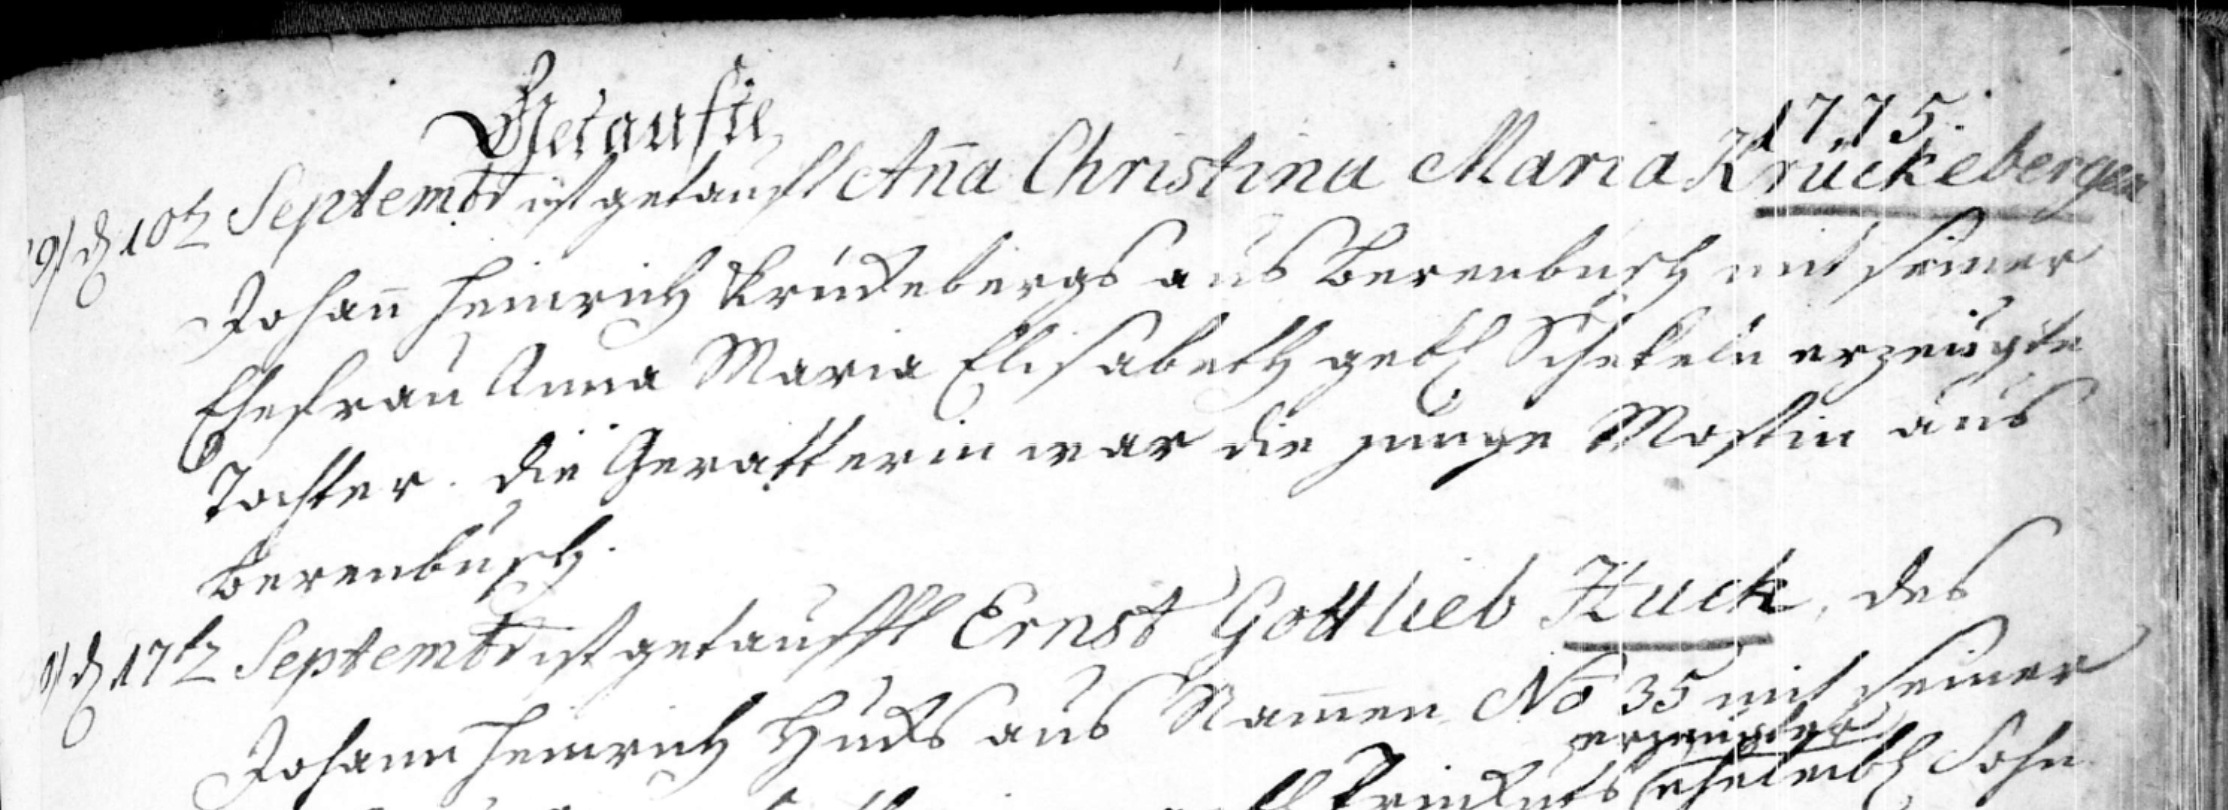 Getaufte
1775.
9) d 10t Septembr ist getaufft Aña Christina Maria Krückebergen
Johañ Heinrich Krückebergs aus Berenbusch mit seiner
Ehefrau Anna Maria Elisabeth geb. erzeugte
Tochter. Die Gevatterin war die junge Mostin aus
Berenbusch.
d 17t Septembr ist getaufft Ernst Gottlieb Huck, des
Johann Heinrich Hucks aus Nam̄en No 35 mit seiner
erzeugter
Sohn